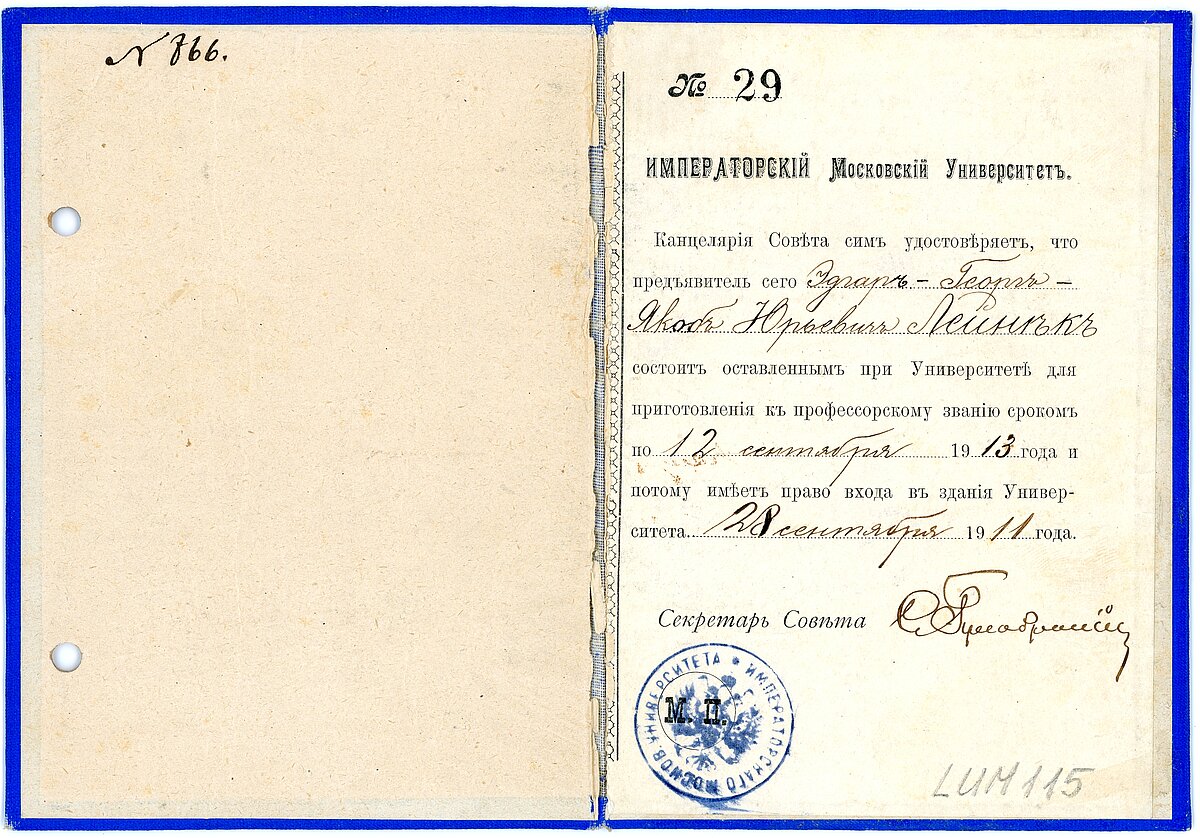 N 866.
№ 29
ИМПЕРАТОРСКІЙ Московскій Университетъ.
Канцелярія Совѣта симъ удостовѣряетъ, что
предъявитель сего Эдгаръ - Георгъ -
Якобъ Юрьевичъ Лейнекъ
состоитъ оставленнымъ при Университетѣ для
приготовленія къ профессорскому званію срокомъ
по 12 сентября 1913 года и
потому имѣетъ право входа въ зданія Универ-
ситета. 28 сентября 1911 года.
Секретарь Совѣта
М. П.
ИМПЕРАТОРСКАГО МОСКОВ. УНИВЕРСИТЕТА
LUM 115